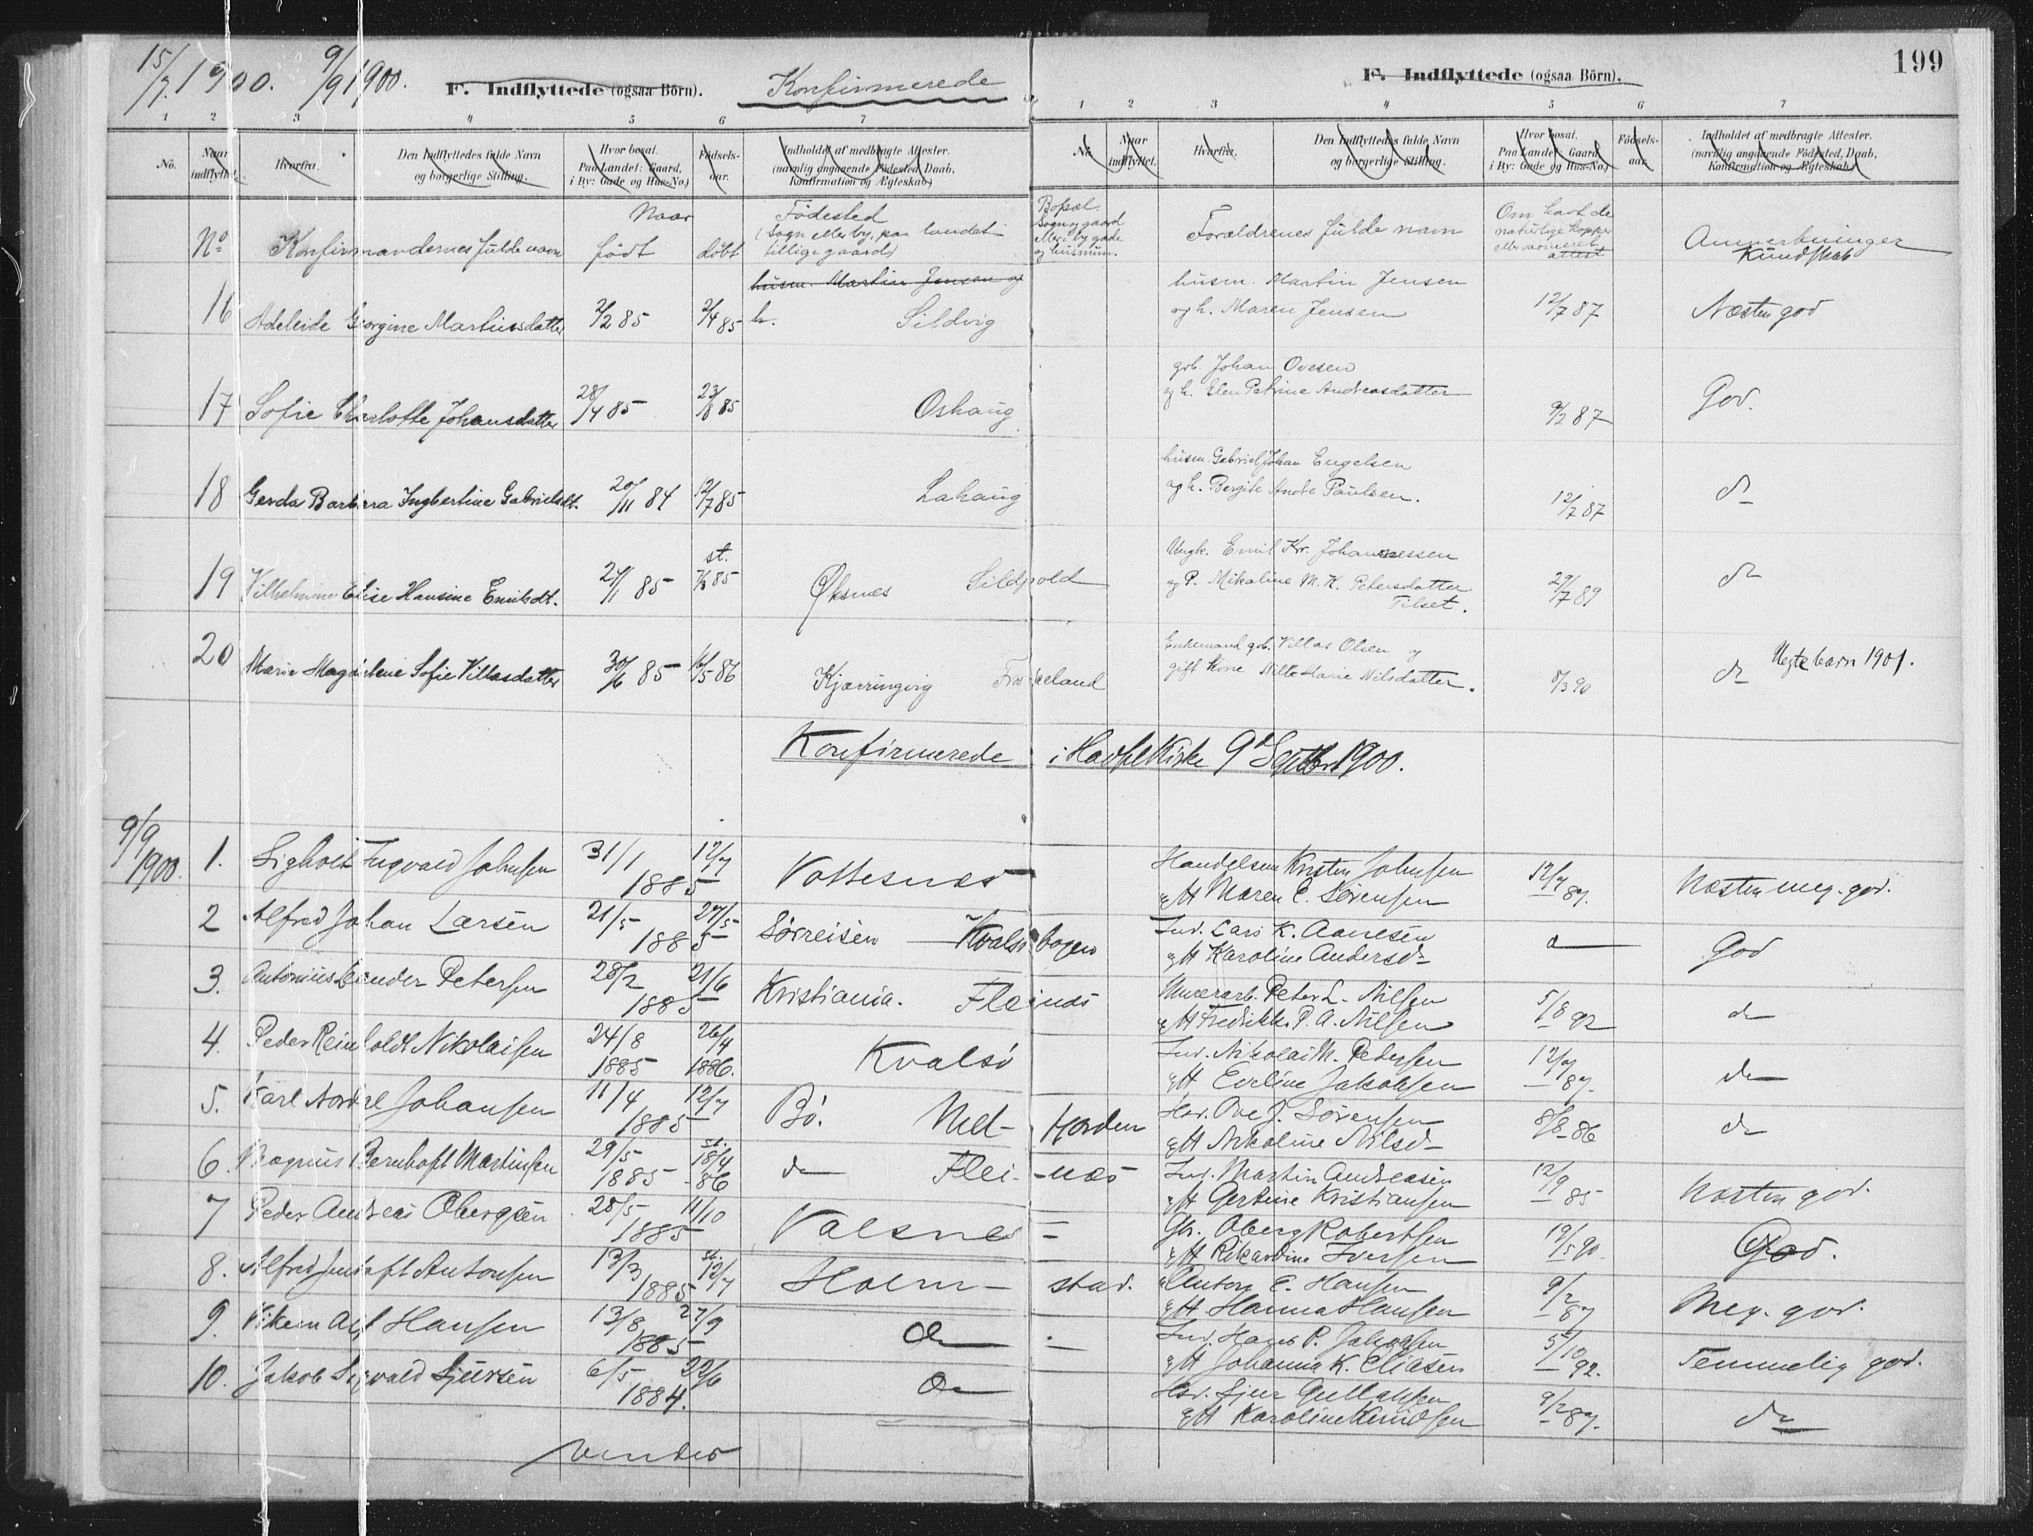 15/7 1900. 9/9 1900.
F. Indflyttede (ogsaa Börn).
Konfirmerede
F. Indflyttede (ogsaa Börn).
199
1 2 3 4 5 6 7
1 2 3 4 5 6 7
No. Naar indflyttet. Hvorfra. Den Indflyttedes fulde Navn og borgerlige Stilling. Hvor bosat. Paa Landet: Gaard, i By: Gade og Hus-No.) Fødsels-aar. Indholdet af medbragte Attester. (navnlig angaaende Födested, Daab, Konfirmation og Ægteskab)
No. Naar indflyttet. Hvorfra. Den Indflyttedes fulde Navn og borgerlige Stilling. Hvor bosat. Paa Landet: Gaard, i By: Gade og Hus-No.) Fødsels-aar. Indholdet af medbragte Attester. (navnlig angaaende Födested, Daab, Konfirmation og Ægteskab)
No Konfirmandernes fulde navn Naar født døbt Fødested (Sogn eller by, paa landet tillige gaard) Bopæl. Sogn gaard eller by gade og husnum. Forældrenes fulde navn Om havt de naturlige kopper eller vaccineret attest Anmerkninger Kundskab
husm. Martin Jensen og
16 Adeleide Georgine Martinsdatter 2/2 85 2/4 85 h. Sildvig husm. Martin Jensen og h. Maren Jensen 12/7 87 Næsten god
17 Sofie Charlotte Johansdatter 28/4 85 23/8 85 Oshaug grb. Johan Ovesen og h. Elen Petrine Andreasdatter 9/2 87 God.
18 Gerda Barbara Ingbertine Gabrielsdt. 20/11 84 12/7 85 Lahaug husm. Gabriel Johan Engelsen og h. Bergite Andr Paulsen. 12/7 87 do
19 Vilhelmine Elise Hansine Emilsdt. 27/1 85 st. 1/3 85 Øksnes Sildpold Ungk. Emil Kr. Johannessen og P. Mikaline M. K. Petersdatter Tilset. 29/7 89 do
20 Marie Magdalene Sofie Villasdatter 30/6 85 16/5 86 Kjærringvig Enkemand grb. Villas Olsen og gift kone Marie Nilsdatter. 8/3 90 do Uegte barn 1901.
Konfirmerede i Hadsel Kirke 9d Septbr 1900.
9/9 1900. 1. Sigholt Ingvald Johnsen 31/1 1885 12/7 Vottesnes Handelsm Kristen Johnsen g H Maren C. Sørensen 12/7 87. Næsten meg. god.
2 Alfred Johan Larsen 21/5 1885 27/5 Sørreisen Kvalsøbogen Ind. Lars K. Aanesen g H Karoline Andersd. d God
3. Antonius Leander Petersen 28/2 1885 21/6 Kristiania. Fleines Murerarb. Peter L. Nilsen g H Fredrikke P. A. Nilsen 5/8 92 do
4. Peder Reinholdt Nikolaisen 24/8 1885 26/4 1886. Kvalsø Ind. Nikolai M. Pedersen g H Eveline Jakobsen 12/7 87. do
5. Karl Nordal Johansen 11/4 1885 12/7 Bø. Med- Horden Har. Ove J. Sørensen g H Nikoline Nilsd. 8/8 86 do
6. Magnus Bernhoft Martinsen 29/5 1885 st. 18/4 -86 do Flei- -nes Ind. Martin Andreasen g H Gertine Kristiansen 12/9 85 Næsten god.
7 Peder Andreas Obergsen 28/5 1885 11/10 Valsnes = Gb. Oberg Robertsen g H Rikardine Iversen 19/5 90. God.
8. Alfred Jentoft Antonsen 13/3 1885 st. 12/7 Holm- stad. Anton E. Hansen g H Hanna Hansen 9/2 87 Meg. god.
9. Vikem Alf Hansen 13/8 1885 27/9 do Ind. Hans P. Jakobsen g H Johanna K. Eliasen 5/10 92. Temmelig god.
10. Jakob Sigvald Sjursen 6/5 1884. 29/6 do Har. Sjur Gullaksen g H Karoline Knudsen 9/2 87. do
vender